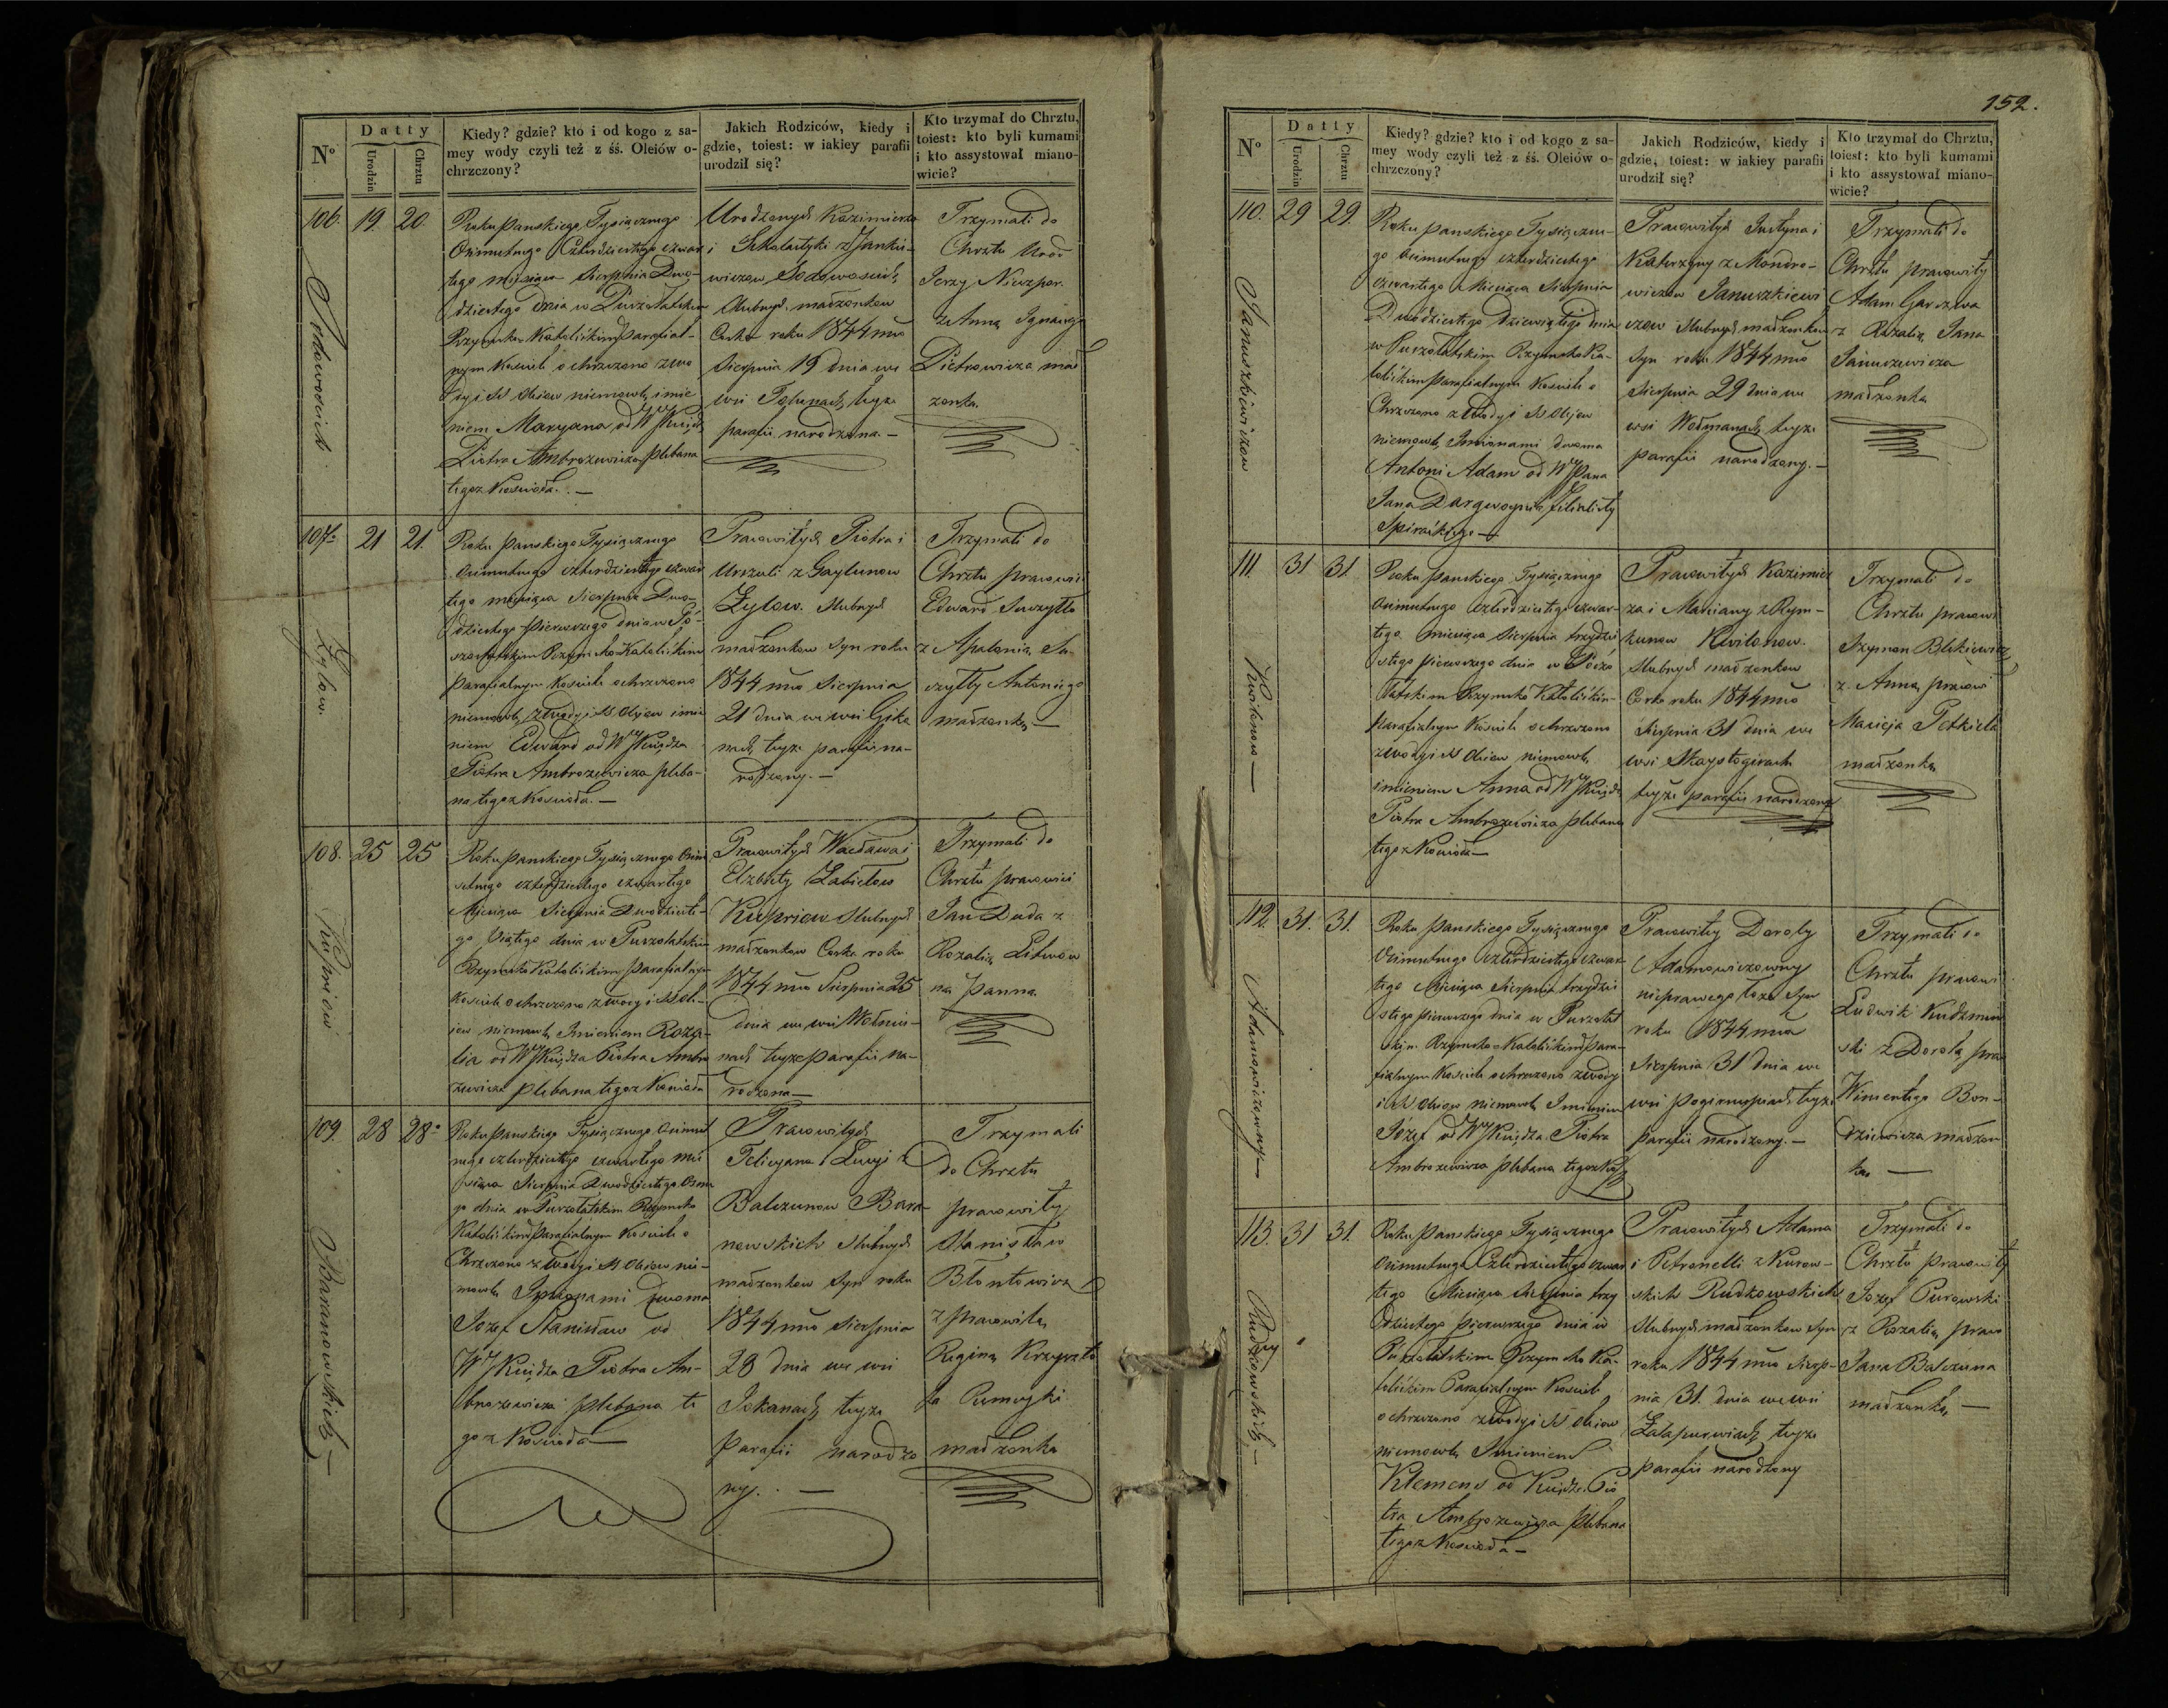 N°
Datty
Urodzin
Chrztu
Kiedy? gdzie? kto i od kogo z sa-
mey wody czyli też z śś. Oleiów o-
chrzczony?
Jakich Rodziców, kiedy i
gdzie, toiest: w iakiey parafii
urodził się?
Kto trzymał do Chrztu,
toiest: kto byli kumami
i kto assystował miano-
wicie?
106.
19
20
Roku Panskiego Tysiącznego
Osimsetnego Czterdziestego czwar
tego miesiąca Sierpnia Dwu-
dziestego dnia w
Rzymsko Katolickim Parafial-
nym Kosciele ochrzczono z wo
dy i SS Olejow niemowle imie
niem Maryana od WJ Xiędza
Piotra Ambrozewicza Plebana
tegoz Koscioła. —
Urodzonych Kazimierza
i Szkolastyki z Jankie-
wiczow
slubnych małżonkow
Corka roku 1844 mo
Sierpnia 19 dnia we
wsi teyze
parafii narodzona. —
Trzymali do
Chrztu Urod
Jerzy
z Anną Ignacego
Pietrowicza mał
zonką.
107.
Zylow.
21
21.
Roku Panskiego Tysiącznego
osimsetnego czterdziestego czwar
tego miesiąca Sierpnia Dwu-
dziestego Pierwszego dnia w Po-
Rzymsko Katolickim
Parafialnym Kosciele ochrzczono
niemowle z wody i SS Olejow imie
niem Edward od WJ Xiędza
Piotra Ambrozewicza pleba-
na tegoz Koscioła. —
Pracowitych Piotra i
Urszuli z Gaylunow
Zylow. slubnych
małżonkow syn roku
1844 mo Sierpnia
21 dnia we wsi Gika
nach teyze parafii na-
rodzony. —
Trzymali do
Chrztu pracowici
Edward
z Apolonią
Antoniego
małżonką —
108.
Kupriow
25
25
Roku Panskiego Tysiącznego Osim
setnego czterdziestego czwartego
Miesiąca Sierpnia Dwudzieste-
go Piątego dnia w
Rzymsko Katolickim parafialnym
Kosciele ochrzczono z wody i SS ole-
jow niemowle Imieniem Roza-
lia od WJ Xiędza Piotra Ambro
zewicza plebana tegoz Koscioła
Pracowitych Wacława i
Elzbiety
Kupriow slubnych
małżonkow Corka roku
1844 mo Sierpnia 25
dnia we wsi
nach teyze parafii na-
rodzona —
Trzymali do
Chrztu pracowici
Jan Duda z
Rozalią Litwow
na Panna
109.
Baranowskich —
28
28
Roku Panskiego Tysiącznego Osimset
nego czterdziestego czwartego mie
siąca Sierpnia Dwudziestego Osme
go dnia w Rzymsko
Katolickim Parafialnym Kosciele o
chrzczono z wody i SS Olejow nie-
mowle Imionami dwoma
Józef Stanisław od
WJ Xiędza Piotra Am-
brozewicza plebana te
goz Koscioła —
Pracowitych
Felicyana i Lucyi z
Balczunow Bara-
nowskich slubnych
małżonkow syn roku
1844 mo Sierpnia
28 dnia we wsi
Jokanach teyze
parafii narodzo
ny. —
Trzymali
do Chrztu
pracowity
Stanisław
z pracowitą
Reginą Krzyszto
fa
małżonką
152.
N°
Datty
Urodzin
Chrztu
Kiedy? gdzie? kto i od kogo z sa-
mey wody czyli też z śś. Oleiów o-
chrzczony?
Jakich Rodziców, kiedy i
gdzie, toiest: w iakiey parafii
urodził się?
Kto trzymał do Chrztu,
toiest: kto byli kumami
i kto assystował miano-
wicie?
110.
Januszkiewiczow
29
29.
Roku Panskiego Tysiączne-
go osimsetnego czterdziestego
czwartego Miesiąca Sierpnia
Dwudziestego Dziewiątego dnia
w Rzymsko Ka-
tolickim Parafialnym Kosciele o
chrzczono z wody i SS Olejow
niemowle Imionami dwoma
Antoni Adam od WJ Pana
Jana
Pracowitych Justyna i
Katarzyny z Mondro-
wiczow Januszkiewi
czow slubnych małżonkow
syn roku 1844 mo
Sierpnia 29 dnia we
wsi teyze
parafii narodzony. —
Trzymali do
Chrztu pracowity
Adam
z Rozalią Jana
Januszewicza
małżonką
111.
Kwilonow —
31
31
Roku Panskiego Tysiącznego
osimsetnego czterdziestego czwar-
tego miesiąca Sierpnia trzydzie
stego pierwszego dnia w
Rzymsko Katolickim
Parafialnym Kosciele ochrzczono
z wody i SS Olejow niemowle
imieniem Anna od WJ Xiędza
Piotra Ambrozewicza plebana
tegoz Koscioła —
Pracowitych Kazimier
za i Maryanny z Rym-
kunow Kwilonow.
slubnych małżonkow
Corka roku 1844 mo
Sierpnia 31 dnia we
wsi Skaystogirach
teyze parafii narodzona
Trzymali do
Chrztu pracowi
Szymon
z Anną pracowi
Macieja Petkiela
małżonką
112.
Adamowiczowny —
31.
31.
Roku Panskiego Tysiącznego
Osimsetnego Czterdziestego czwar
tego Miesiąca Sierpnia trzydzie
stego pierwszego dnia w
skim Rzymsko-Katolickim Para-
fialnym Kosciele ochrzczono z wody
i SS Olejow niemowle Imieniem
Józef od WJ Xiędza Piotra
Ambrozewicza plebana tegoz
Pracowitey Doroty
Adamowiczowny
nieprawego łoza syn
roku 1844 mo
Sierpnia 31 dnia we
wsi teyze
parafii narodzony. —
Trzymali do
Chrztu pracowi
Ludwik
ski z Dorotą prac
Wincentego Bon-
dziewicza małżon
ką —
113.
Rudkowskich —
31
31.
Roku Panskiego Tysiącznego
osimsetnego Czterdziestego czwar
tego Miesiąca Sierpnia trzy
dziestego pierwszego dnia w
Rzymsko Ka-
tolickim Parafialnym Kosciele
ochrzczono z wody i SS Olejow
niemowle Imieniem
Klemens od Xiędza Pio
tra Ambrozewicza Plebana
tegoz Koscioła —
Pracowitych Adama
i Petronelli z Kurow-
skich Rudkowskich
slubnych małżonkow syn
roku 1844 mo Sierp-
nia 31. dnia we wsi
teyze
parafii narodzony
Trzymali do
Chrztu pracowity
Jozef
z Rozalią praco
Jana Balczuna
małżonką —